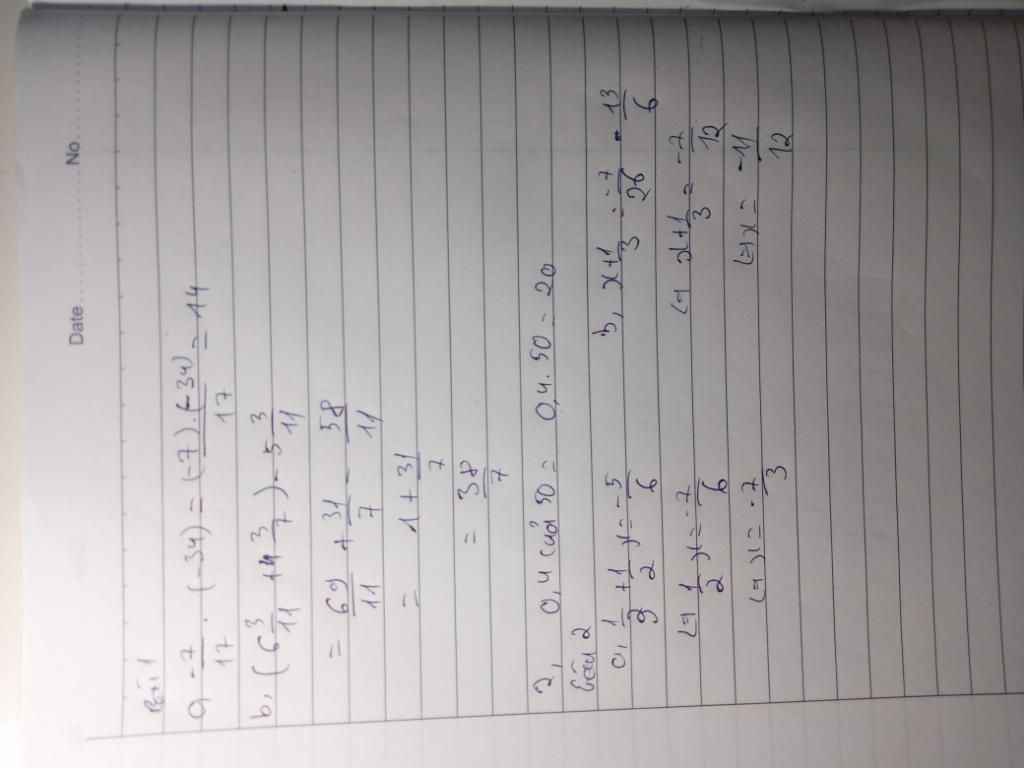 Date No.
Bài 1
a, -7/17 . (-34) = (-7).(-34)/17 = 14
b, (6 3/11 + 4 3/7) - 5 3/11
= 69/11 + 31/7 - 58/11
= 1 + 31/7
= 38/7
2, 0,4 của 50 = 0,4.50 = 20
Bài 2
a, 1/3 + 1/2 x = -5/6 b, x+1/3 = -7/26 . 13/6
(=) 1/2 x = -7/6 (=) x+1/3 = -7/12
(=) x = -7/3 (=) x = -11/12